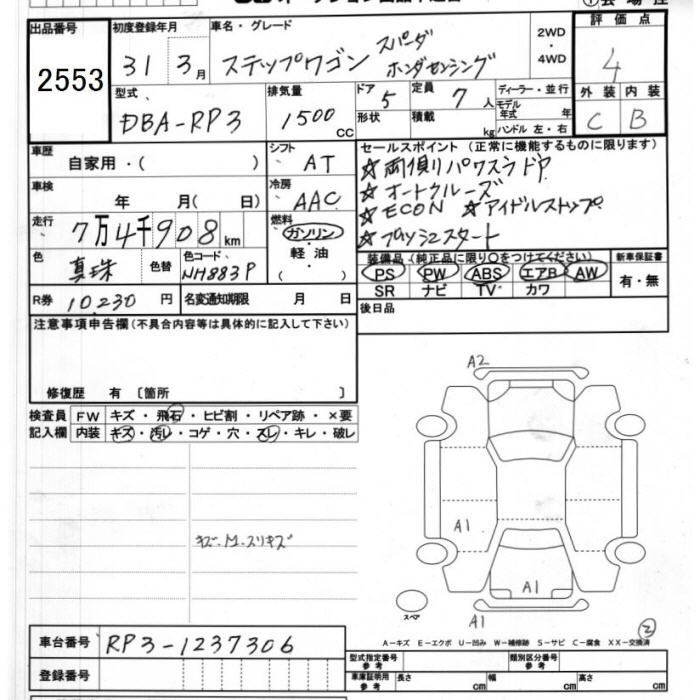 出品番号
2553
初度登録年月
31 3月
車名・グレード
ステップワゴン スパーダ
ホンダセンシング
2WD
・
4WD
評価点
4
外装 内装
C B
型式
DBA-RP3
排気量
1500 cc
ドア 5
形状
定員 7 人
積載 kg
ディーラー・並行
モデル年式 年
ハンドル 左・右
車歴
自家用・( )
シフト
AT
車検
年 月( 日)
冷房
AAC
走行
7万4千908km
燃料
ガソリン
・
軽油
・
色
真珠
色替
色コード
NH883P
R券 10,230 円
名変通知期限 月 日
セールスポイント (正常に機能するものに限ります)
☆両側パワスラドア
☆オートクルーズ
☆ECON ☆アイドルストップ
☆プッシュスタート
装備品 (純正品に限り○をつけてください)
PS PW ABS エアB AW
SR ナビ TV カワ
新車保証書
有・無
後日品
注意事項申告欄(不具合内容等は具体的に記入して下さい)
修復歴 有 〔箇所 〕
検査員記入欄
FW キズ・飛石・ヒビ割・リペア跡・×要
内装 キズ・汚レ・コゲ・穴・スレ・キレ・破レ
キズ.M.スリキズ
A2
A1
A1
A1
スペア
2
A-キズ E-エクボ U-凹み W-補修跡 S-サビ C-腐食 XX-交換済
車台番号 RP3-1237306
登録番号
型式指定番号 参考
類別区分番号 参考
車庫証明用 参考
長さ cm 幅 cm 高さ cm